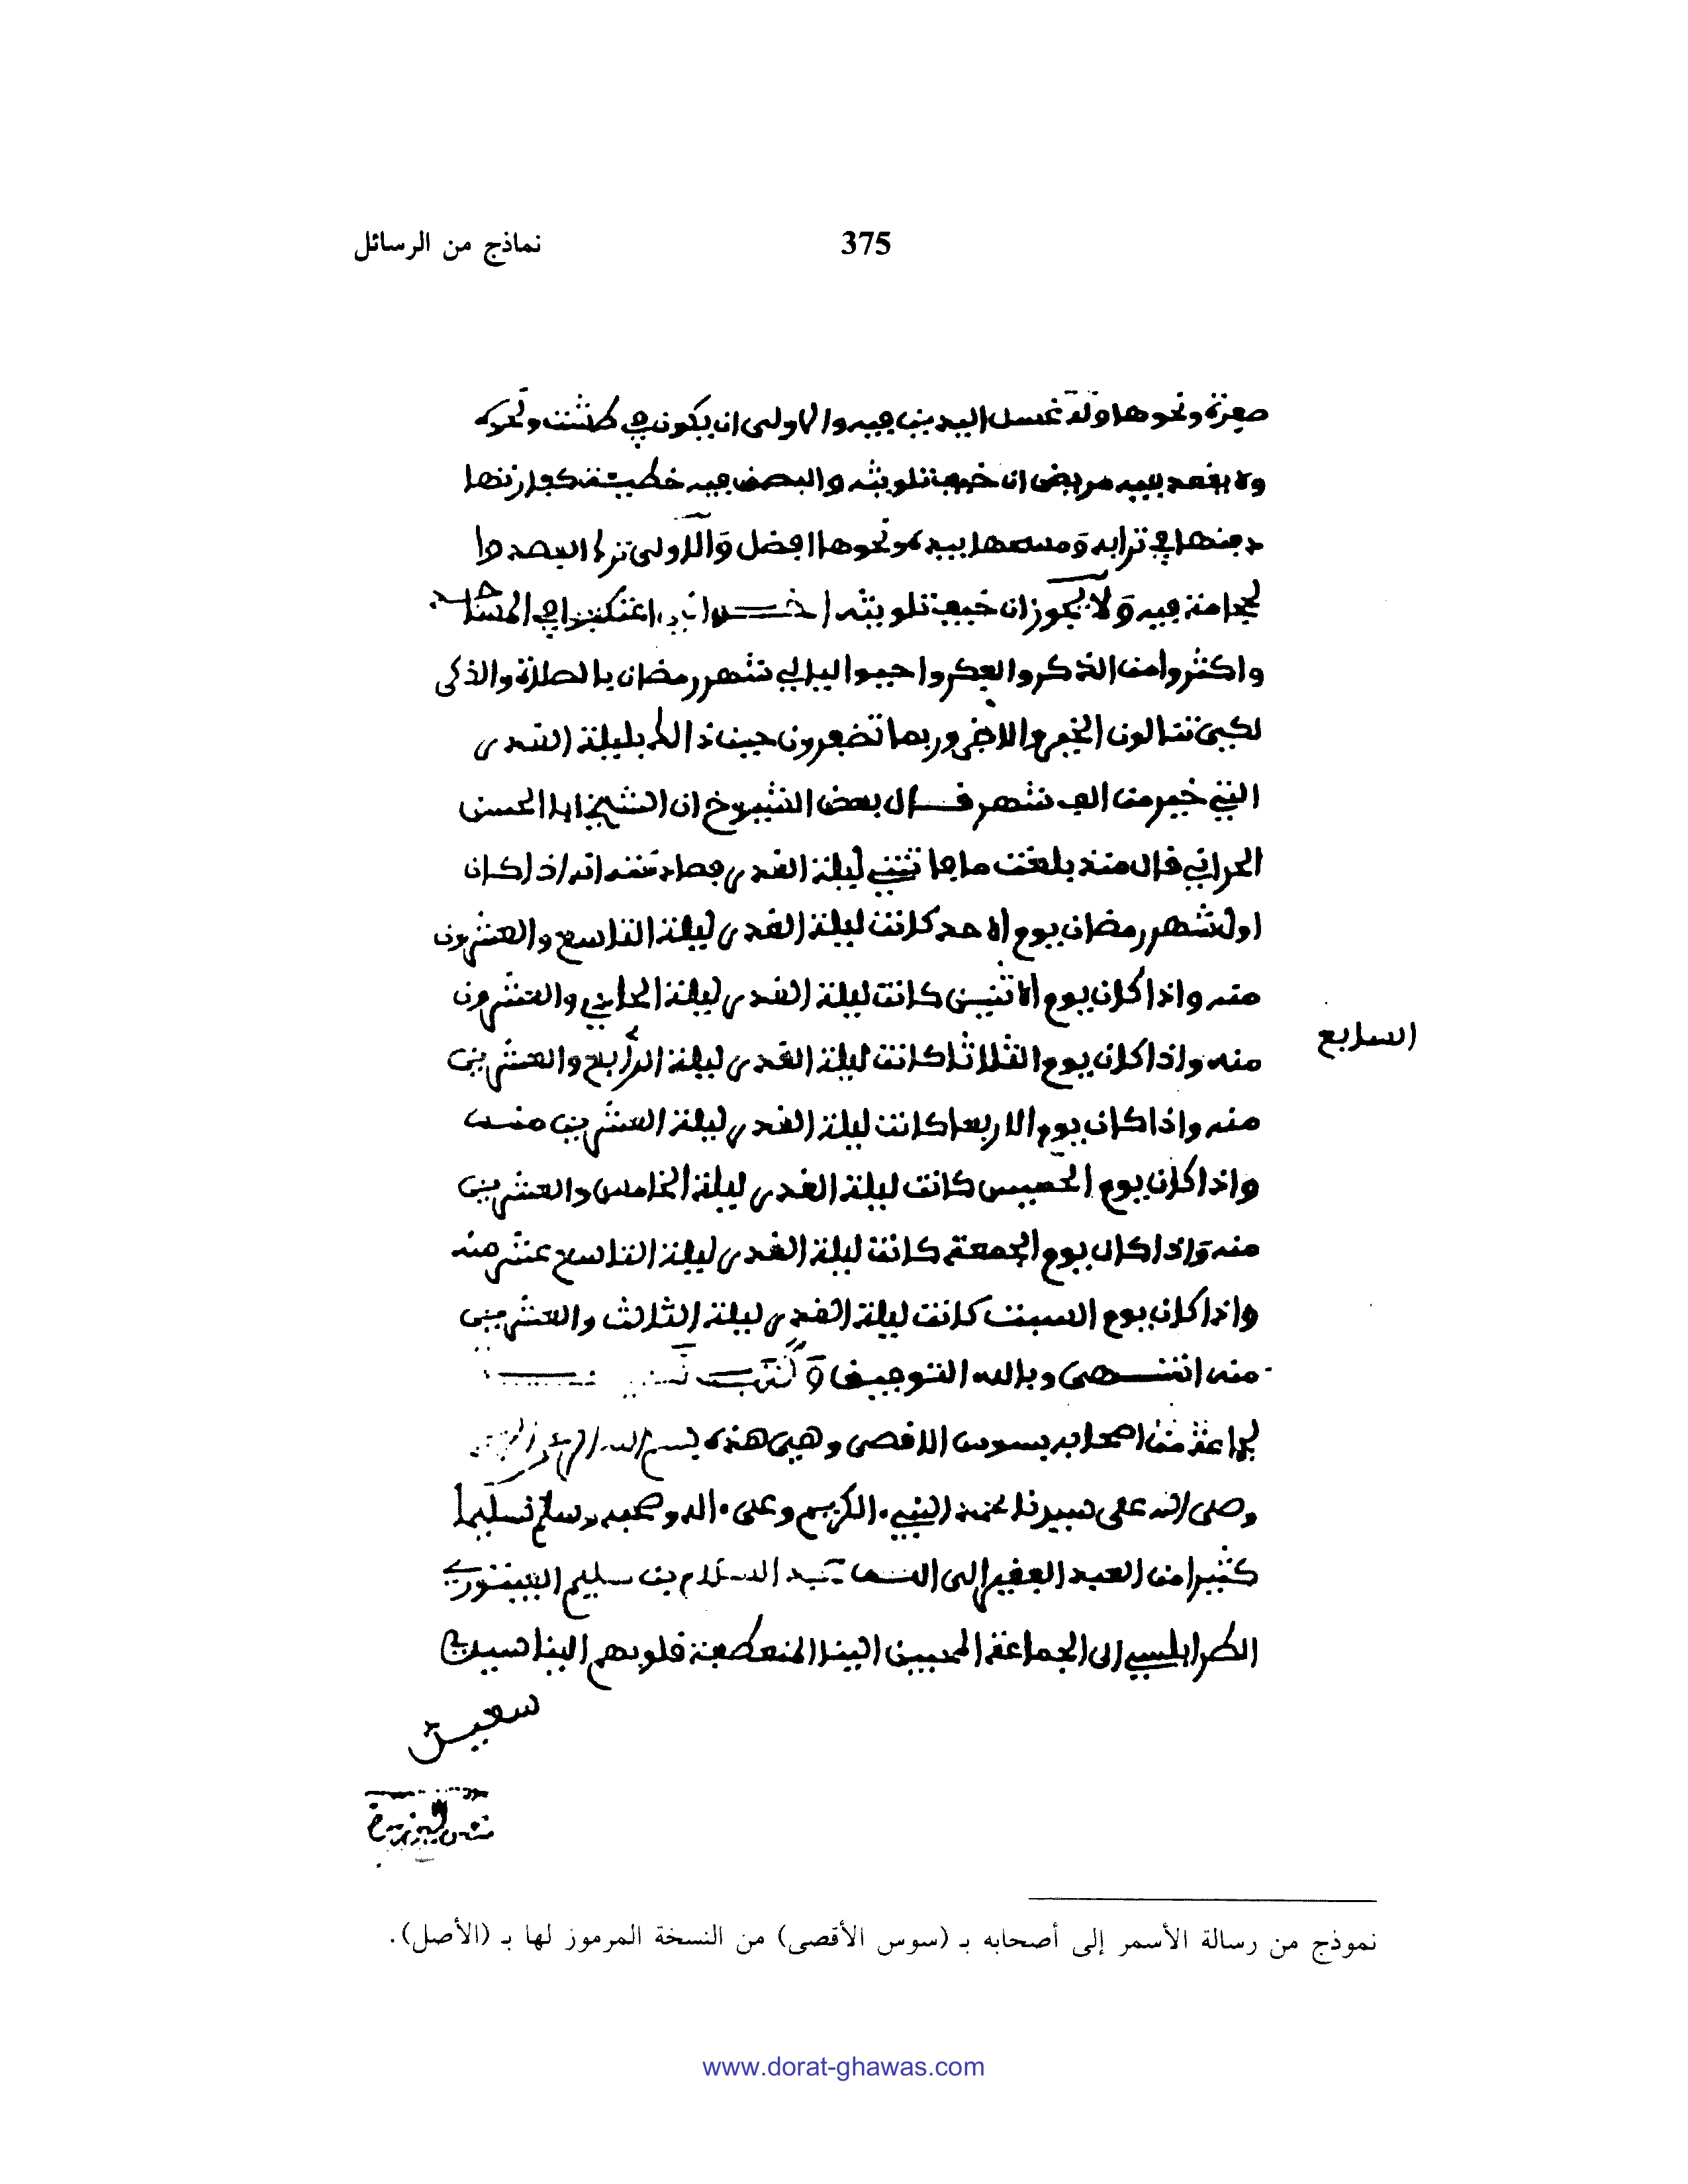 نماذج من الرسائل
375
ونحوها وله غسل اليدين فيه والاولى ان يكون في طشت ونحوه
ولا يقعد فيه مريض ان خيف تلويثه والبصق فيه خطيئة كفارتها
دفنها في ترابه ومسحها بيده ونحوها افضل والاولى ترك الفصد وا
لحجامة فيه ولا يجوز ان خيف تلويثه
واكثروا من الذكر والفكر واحيوا ليالي شهر رمضان بالصلاة والذكر
لكي تنالون الخير والاجر وربما تضفرون حين ذالك بليلة القدر
التي خير من الف شهر قال بعض الشيوخ ان الشيخ ابا الحسن
الحراني قال منذ بلغت ما فاتتني ليلة القدر انه اذا كان
اول شهر رمضان يوم الاحد كانت ليلة القدر ليلة التاسع والعشرون
منه واذا كان يوم الاثنين كانت ليلة القدر ليلة الحادي والعشرون
منه واذا كان يوم الثلاثا كانت ليلة القدر ليلة الرابع والعشرين
السابع
منه واذا كان يوم الاربعا كانت ليلة القدر ليلة العشرين منه
واذا كان يوم الخميس كانت ليلة القدر ليلة الخامس والعشرين
منه واذا كان يوم الجمعة كانت ليلة القدر ليلة التاسع عشر منه
واذا كان يوم السبت كانت ليلة القدر ليلة الثالث والعشرين
منه انتهى وبالله التوفيق وكتب
لجماعة من اصحابه بسوس الاقصى وهي هذه بسم الله الرحمن الرحيم
وصلى الله على سيدنا محمد النبي الكريم وعلى اله وصحبه وسلم تسليما
كثيرا من العبد الفقير الى الله عبد السلام بن سليم الفيتوري
الطرابلسي الى الجماعة المحبين الينا المنعطفة قلوبهم الينا سيدي
نموذج من رسالة الأسمر إلى أصحابه بـ (سوس الأقصى) من النسخة المرموز لها بـ (الأصل).
www.dorat-ghawas.com